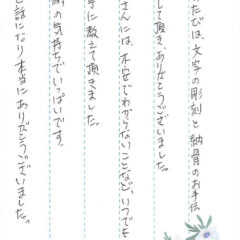 たびは、文字の彫刻と納骨のお手伝
して頂き、ありがとうございました。
さんには、不安でわからないことなど、いつでも
寧に教えて頂きました。
謝の気持ちでいっぱいです。
世話になり本当にありがとうございました。